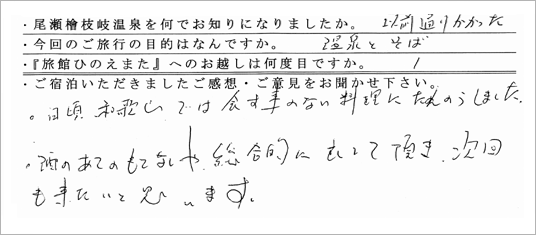 ・尾瀬檜枝岐温泉を何でお知りになりましたか。 以前通りかかった
・今回のご旅行の目的はなんですか。 温泉とそば
・『旅館ひのえまた』へのお越しは何度目ですか。 1
・ご宿泊いただきましたご感想・ご意見をお聞かせ下さい。
。日頃 和歌山では食す事のない料理にたんのうしました。
・酒のあてのもてなしや、総合的に して頂き、次回
も来たいと思います。